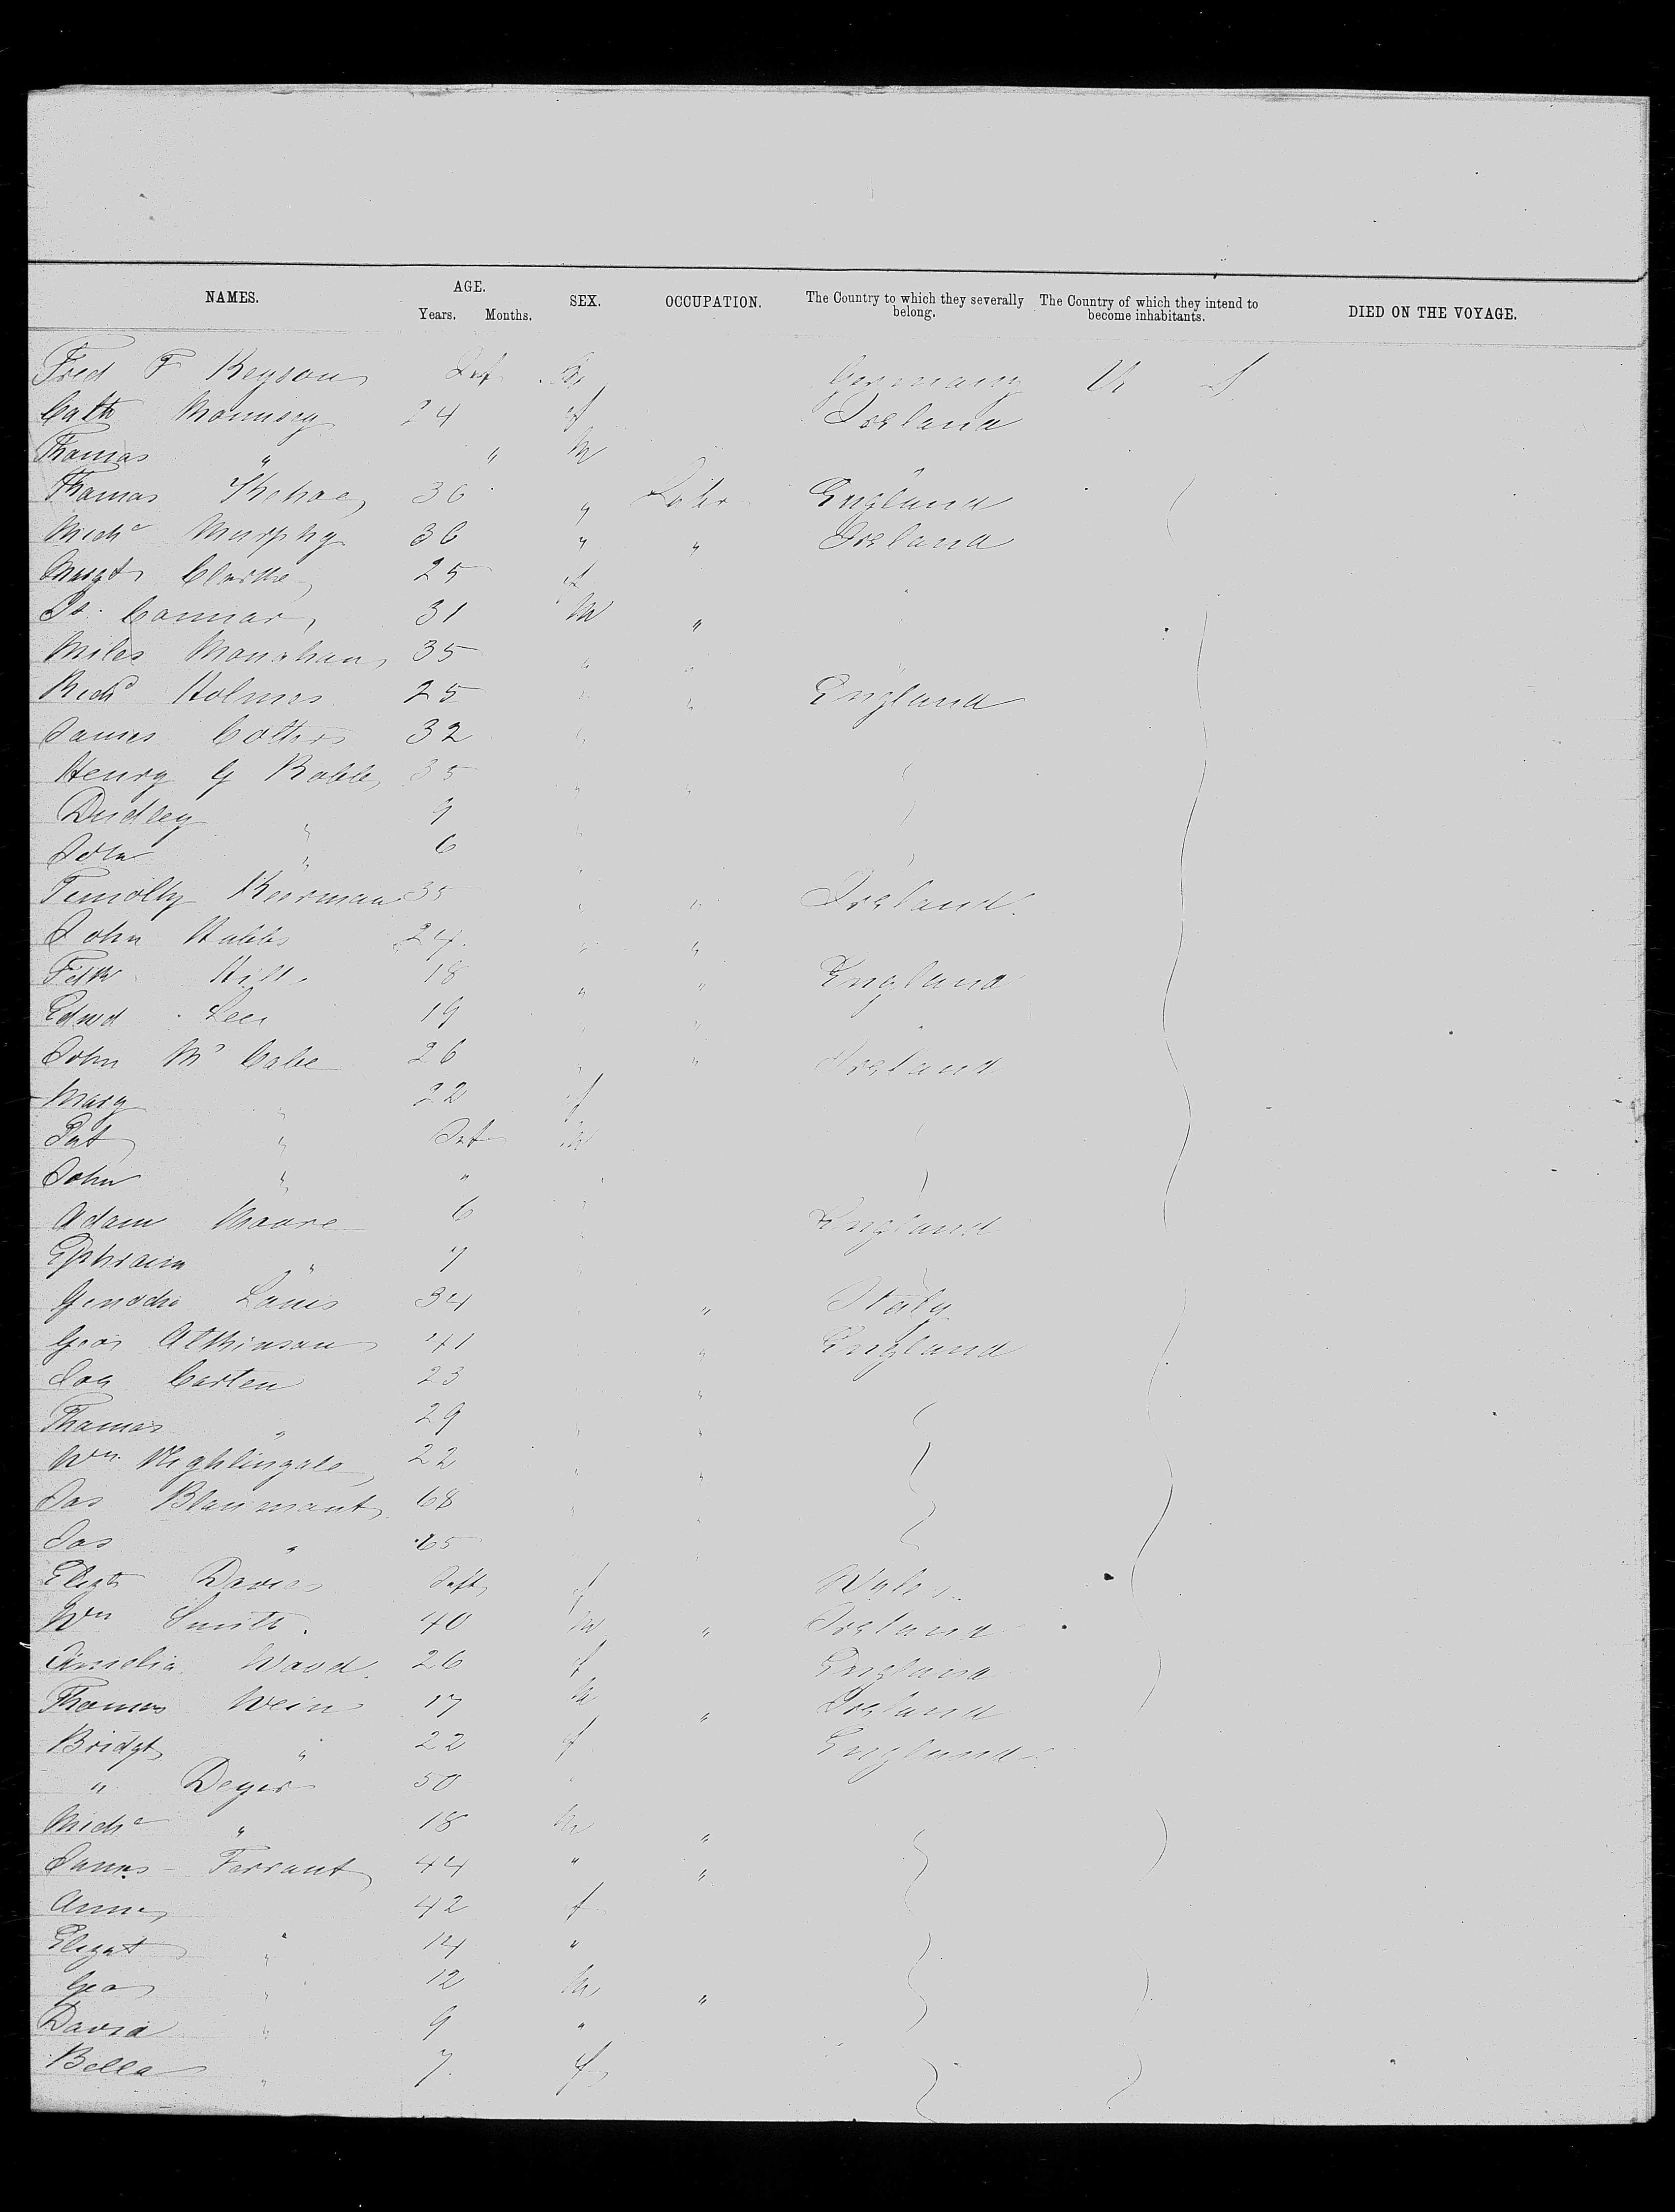 NAMES. AGE. Years. Months. SEX. OCCUPATION. The Country to which they severally belong. The Country of which they intend to become inhabitants. DIED ON THE VOYAGE.
Fred F Keyson Inf M Germany U S
Cath 24 f Ireland
Thomas " " M
Thomas 36 " Labr England
Micha Murphy 36 " " Ireland
Margt Clarke 25 f
Connor 31 M "
Miles Monahan 35 " "
Richd Holmes 25 " " England
James Cotters 32 "
Henry G Robb 35 " "
Dudley " 9 "
John " 6 "
Timothy Kiernan 35 " " Ireland
John Hubbs 24 " "
Hill 18 " " England
Edwd Lee 19 " "
John Mc Cabe 26 " " Ireland
Mary " 22 f
Pat " Inf M
John " "
Adam Moore 6 " England
Ephraim " 7
Louis 34 " Italy
Geo Atkinson 41 " England
Carten 23 "
Thomas " 29 " "
Wm Nightingale 22 " "
Jas 68 "
Jas " 65
Elizth Davies Inft f Wales
Wm Smith 40 M " Ireland
Amelia Wood 26 f England
Thomas Wein 17 M " Ireland
Bridgt " 22 f England
" Deyer 50 "
Micha " 18 M "
James Farrant 44 " "
Anne 42 f
Elizat " 14 "
Geo " 12 M "
David " 9 "
Bella " 7 f